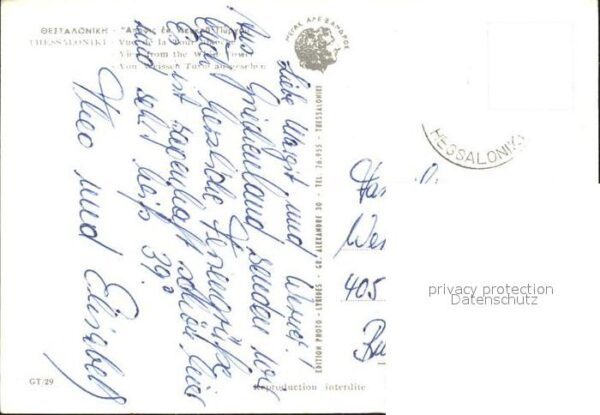 ΘΕΣΣΑΛΟΝΙΚΗ - "Αποψις ἐκ Λευκοῦ Πύργου
THESSALONIKI - Vue de la Tour Blanche
- View from the White Tower
- Von Weissen Turm ausgesehen
ΜΕΓΑΣ ΑΛΕΞΑΝΔΡΟΣ
Liebe Margit und Werner!
Aus Griechenland senden wir
Euch herzliche Feriengrüße
Es ist sagenhaft schön hier
und sehr heiß 39°
Theo und Elisabeth
EDITION PHOTO - LYRIDES - GR. ALEXANDRE 30 - TEL. 76.955 - THESSALONIKI
THESSALONIKI
Fam.
405
privacy protection
Datenschutz
GT/29
Reproduction interdite